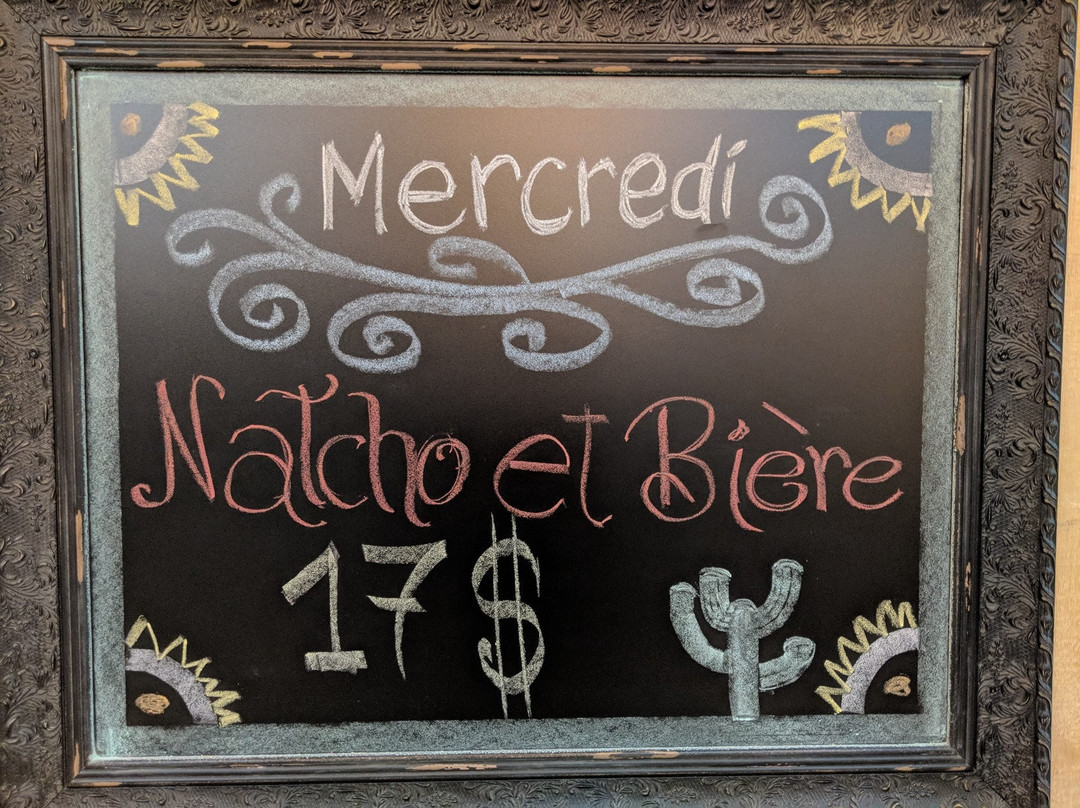 Mercredi
Natcho et Bière
17 $